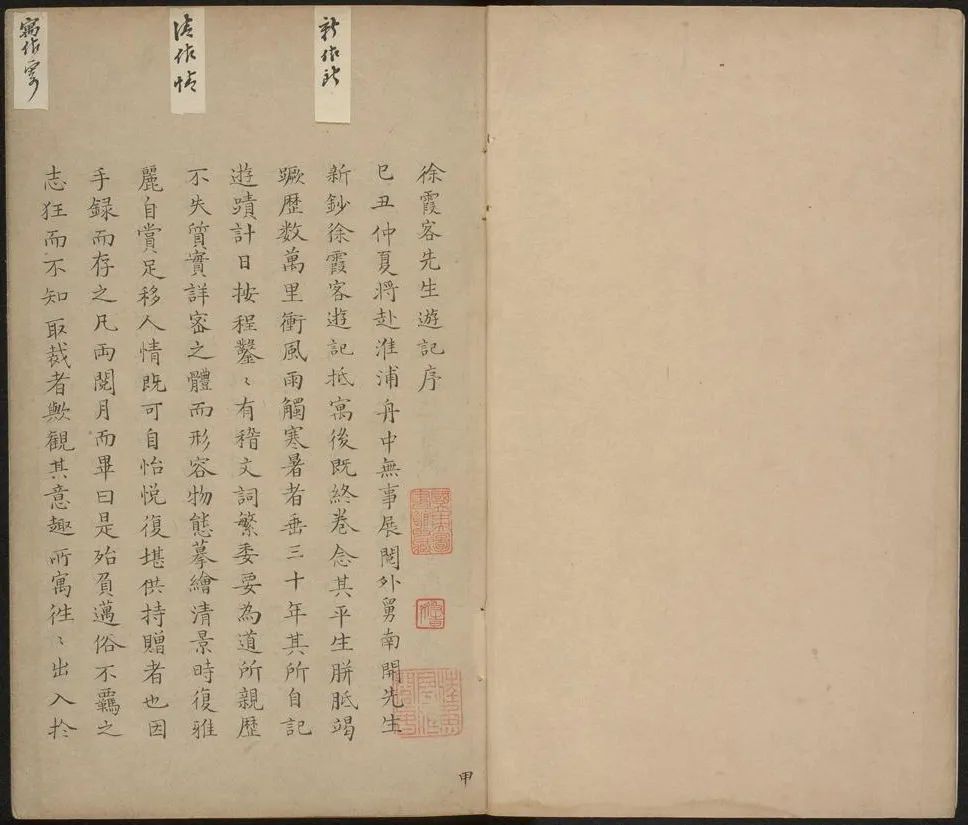 徐霞客先生遊記序
已丑仲夏將赴淮浦舟中無事展閱外舅南開先生
新鈔徐霞客遊記抵寓後既終卷念其平生胼胝竭
蹶歷数萬里衝風雨觸寒暑者垂三十年其所自記
遊蹟計日按程鑿〻有稽文詞繁委要為道所親歷
不失質實詳密之體而形容物態摹繪清景時復雅
麗自賞足移人情既可自怡悦復堪供持贈者也因
手録而存之凡兩閱月而畢曰是殆負邁俗不羈之
志狂而不知取裁者歟觀其意趣所寓徃〻出入於
新作
清作情
寫作
甲